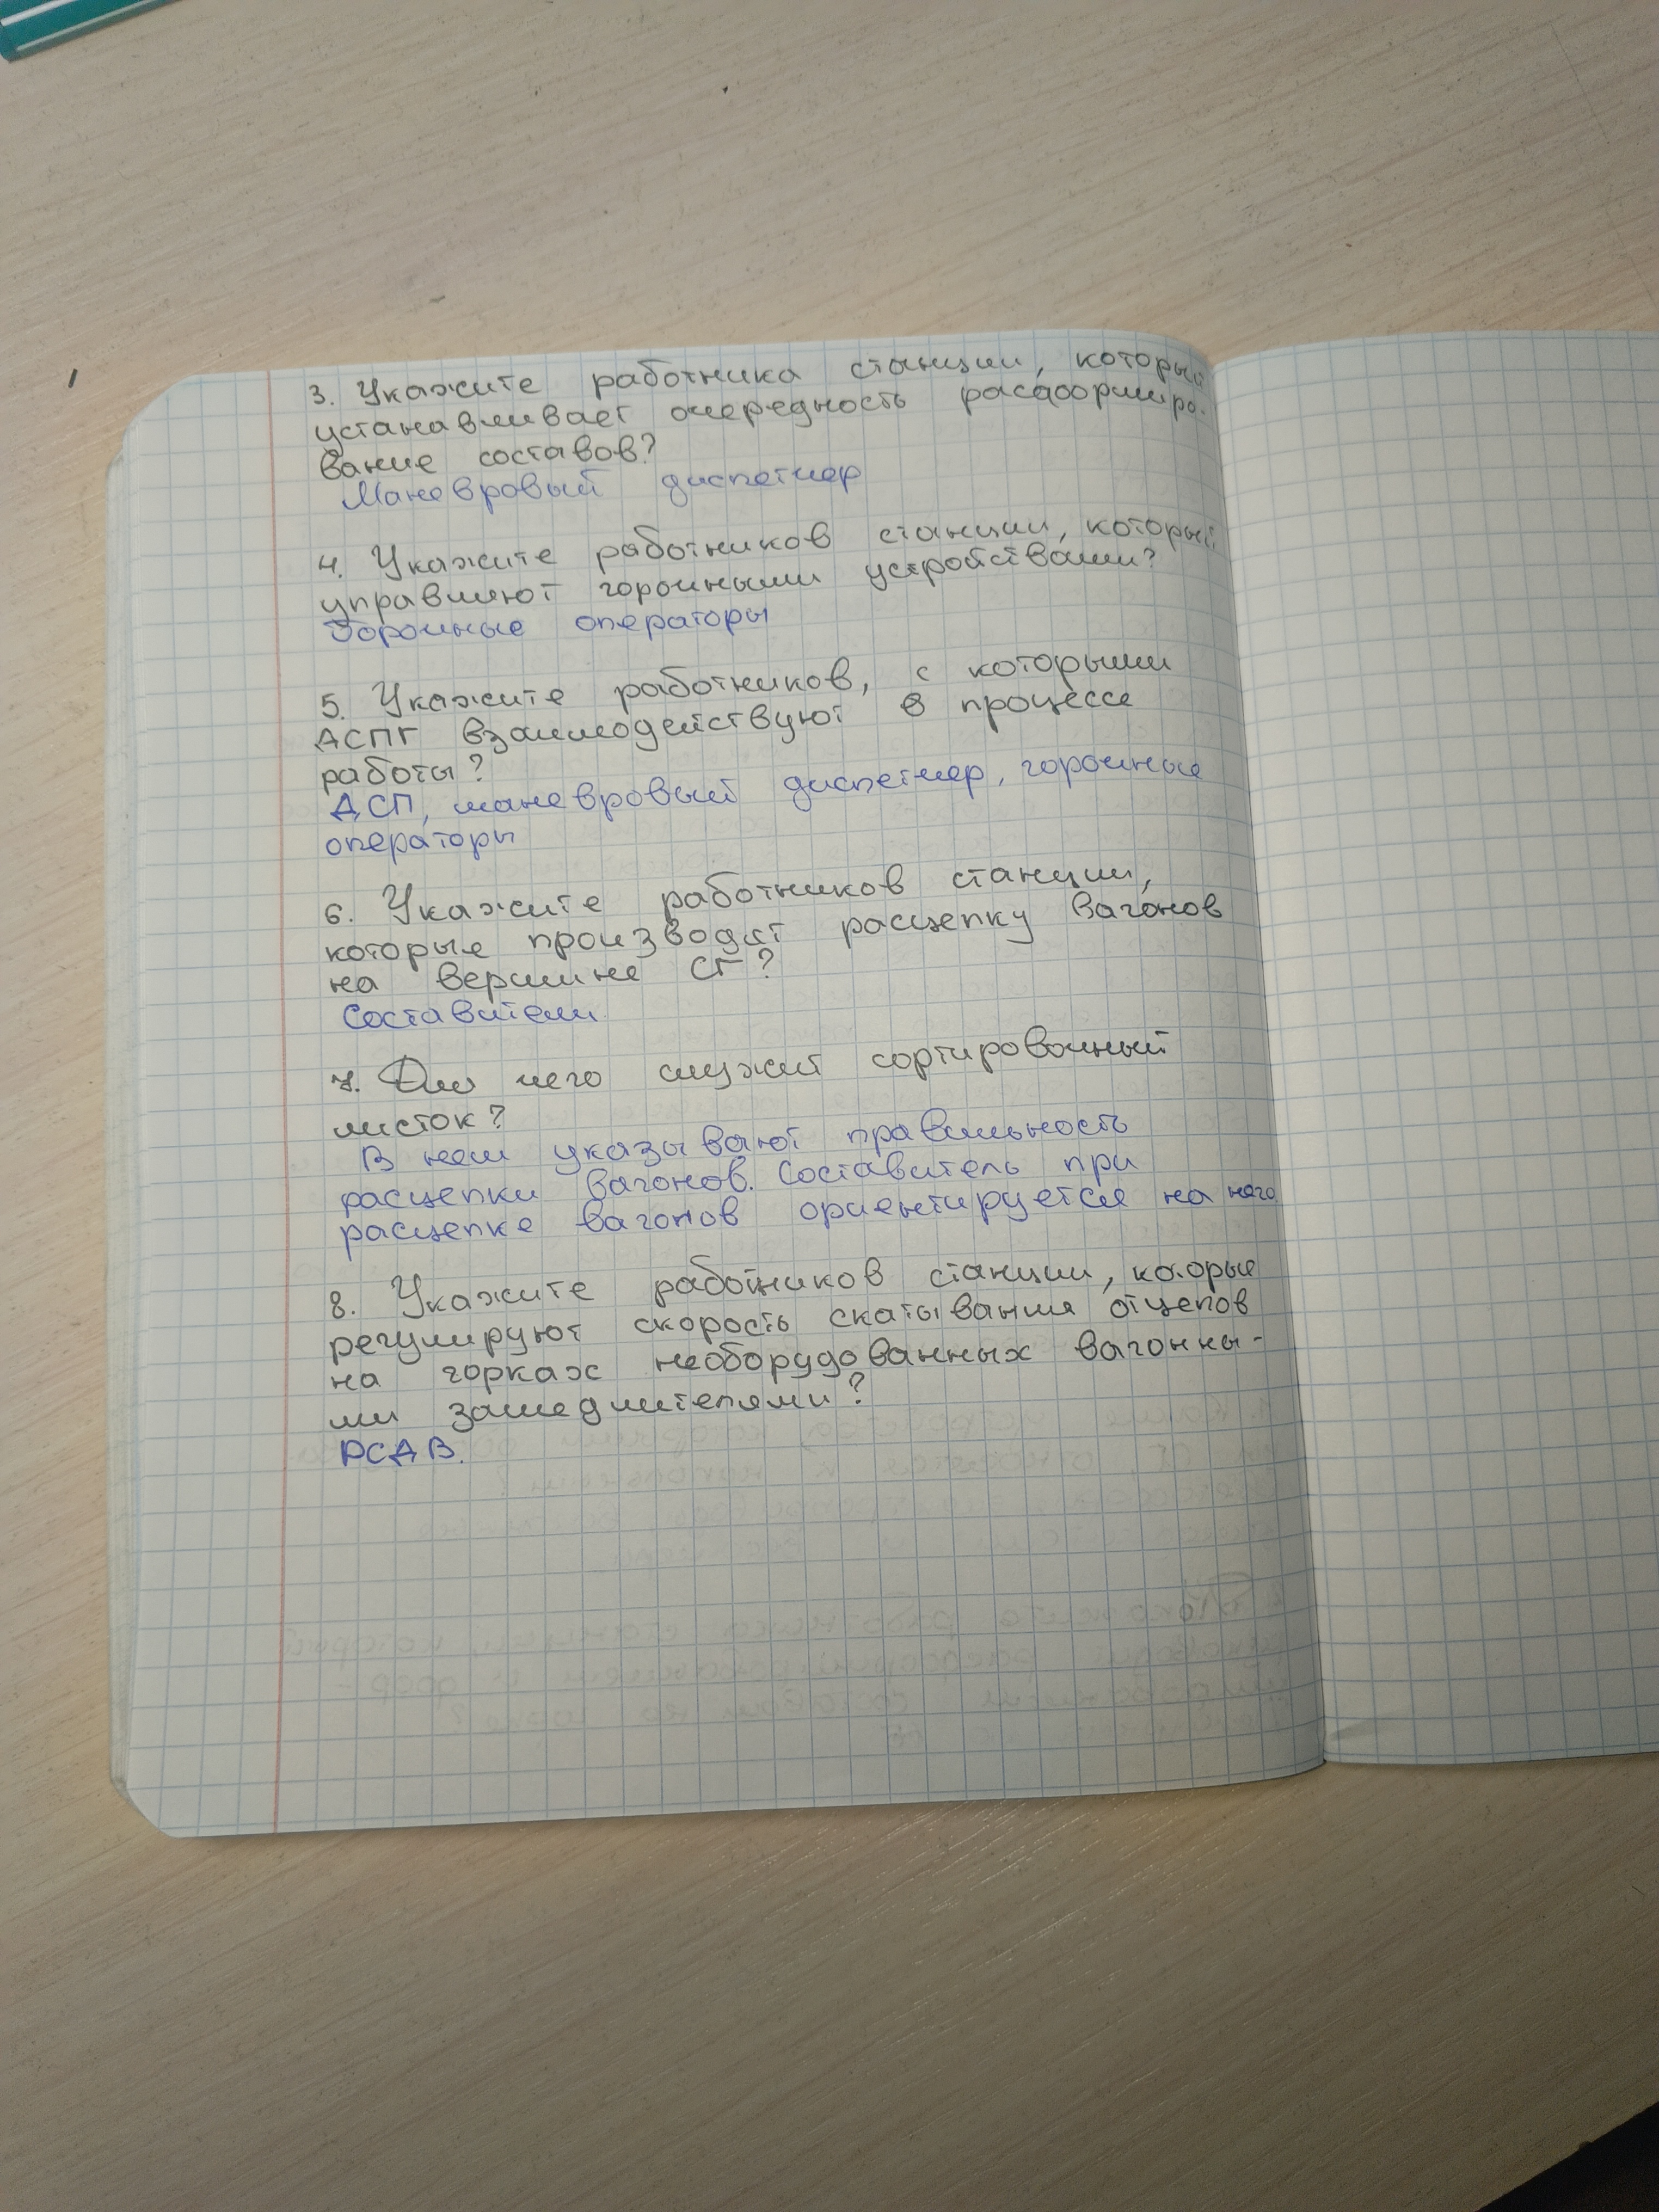 3. Укажите работника станции, который
устанавливает очередность расформиро-
вание составов?
Маневровый диспетчер
4. Укажите работников станции, который
управляют горочными устройствами?
Горочные операторы
5. Укажите работников, с которыми
ДСПГ взаимодействуют в процессе
работы?
ДСП, маневровый диспетчер, горочные
операторы
6. Укажите работников станции,
которые производят расцепку вагонов
на вершине СГ?
Составители
7. Для чего служит сортировочный
листок?
В нем указывают правильность
расцепки вагонов. Составитель при
расцепке вагонов ориентируется на него
8. Укажите работников станции, которые
регулируют скорость скатывания отцепов
на горках необорудованных вагонны-
ми замедлителями?
РСДВ.